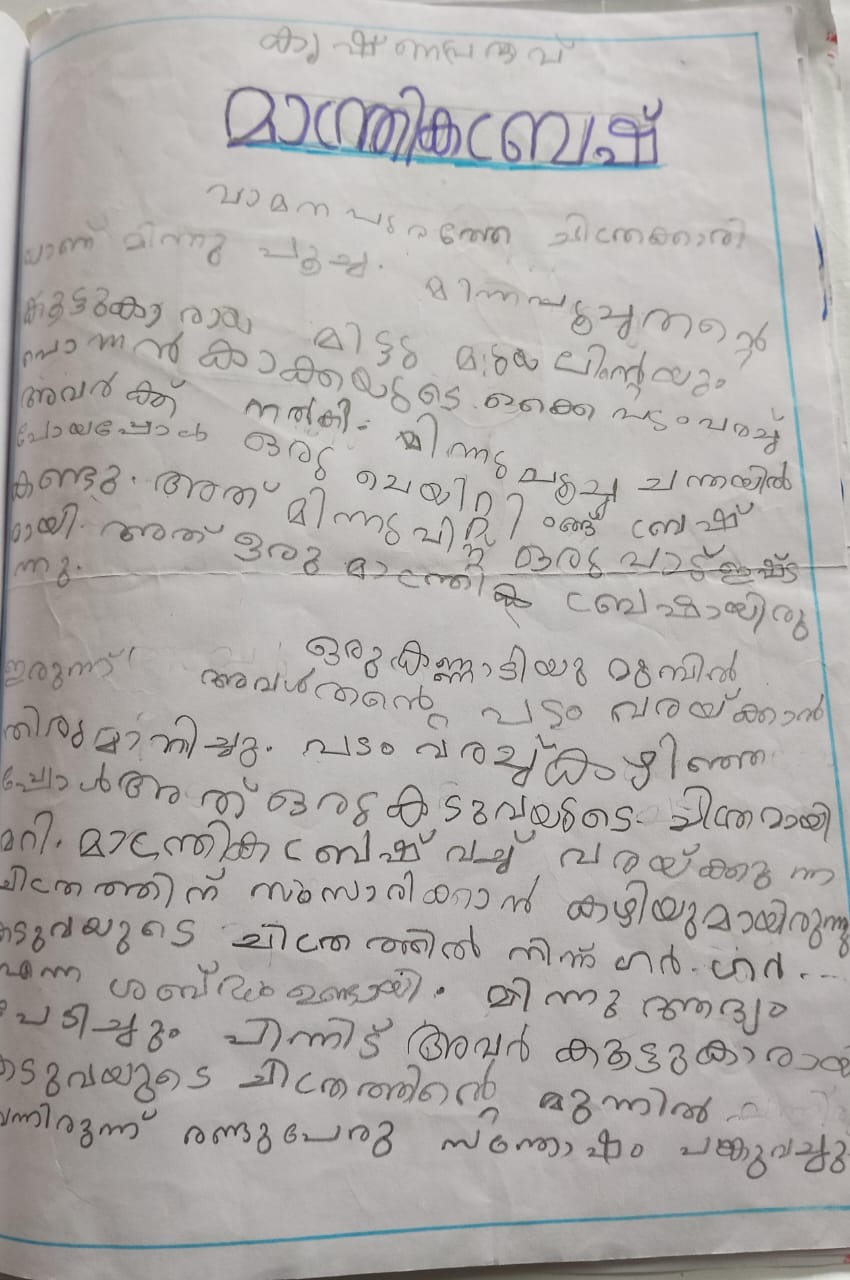 കൃഷ്ണപ്രരുവ്
മാന്ത്രികബ്രഷ്
വാമനപുരത്തേ ചിത്രക്കാരി
യാണ് മിന്നു പൂച്ച.
മിന്നുപൂച്ച തന്റെ
കൂട്ടുകാരായ മിട്ടു മുയലിന്റെയും
പൊന്നൻ കാക്കയുടെ ഒക്കെ പടംവരച്ച്
അവർക്ക് നൽകി. മിന്നുപൂച്ച ചന്തയിൽ
പോയപ്പോൾ ഒരു പെയിറ്റിങ്ങ് ബ്രേഷ്
കണ്ടു. അത് മിന്നുവിന്ന് ഒരുപാട് ഇഷ്ട
മായി. അത് ഒരു മാന്ത്രിക ബ്രേഷായിരു
ന്നു.
ഒരു കണ്ണാടിയു മുമ്പിൽ
ഇരുന്ന് അവൾതന്റെ പടം വരയ്ക്കാൻ
തിരുമാനിച്ചു. പടം വരച്ച്കഴിഞ്ഞ
പ്പോൾ അത് ഒരു കടുവയുടെ ചിത്രമായി
മറി. മാന്ത്രിക ബ്രേഷ് വച്ച് വരയ്ക്കുന്ന
ചിത്രത്തിന് സംസാരിക്കാൻ കഴിയുമായിരുന്നു
കടുവയുടെ ചിത്രത്തിൽ നിന്ന് ഗർ. ഗർ....
എന്ന ശബ്ദം ഉണ്ടായി. മിന്നു ആദ്യം
പേടിച്ചും പിന്നിട് അവർ കൂട്ടുകാരായ
കടുവയുടെ ചിത്രത്തിന്റെ മുന്നിൽ
വന്നിരുന്ന് രണ്ടുപേരു സന്തോഷം പങ്കുവച്ചു